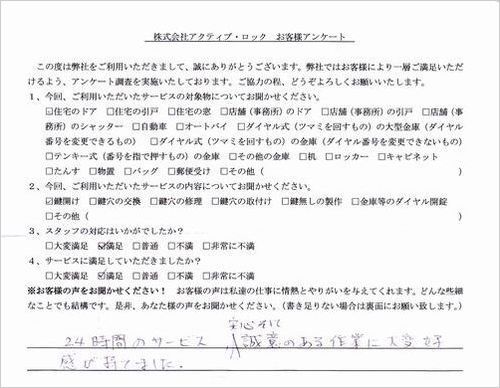 株式会社アクティブ・ロック　お客様アンケート
この度は弊社をご利用いただきまして、誠にありがとうございます。弊社ではお客様により一層ご満足いただ
けるよう、アンケート調査を実施いたしております。ご協力の程、どうぞよろしくお願いいたします。
1、今回、ご利用いただいたサービスの対象物についてお聞かせください。
☑住宅のドア　□住宅の引戸　□住宅の窓　□店舗（事務所）のドア　□店舗（事務所）の引戸　□店舗（事
務所）のシャッター　□自動車　□オートバイ　□ダイヤル式（ツマミを回すもの）の大型金庫（ダイヤル
番号を変更できるもの）　□ダイヤル式（ツマミを回すもの）の金庫（ダイヤル番号を変更できないもの）
□テンキー式（番号を指で押すもの）の金庫　□その他の金庫　□机　□ロッカー　□キャビネット
□たんす　□物置　□バッグ　□郵便受け　□その他（
2、今回、ご利用いただいたサービスの内容についてお聞かせください。
☑鍵開け　□鍵穴の交換　□鍵穴の修理　□鍵穴の取付け　□鍵無しの製作　□金庫等のダイヤル開錠
□その他（　　）
3、スタッフの対応はいかがでしたか？
□大変満足　☑満足　□普通　□不満　□非常に不満
4、サービスに満足していただきましたか？
□大変満足　☑満足　□普通　□不満　□非常に不満
※お客様の声をお聞かせください！　お客様の声は私達の仕事に情熱とやりがいを与えてくれます。どんな些細
なことでも結構です。是非、あなた様の声をお聞かせください。（書き足りない場合は裏面にお願い致します。）
安心そして
24時間のサービス　誠意のある作業に大変好
感が持てました。